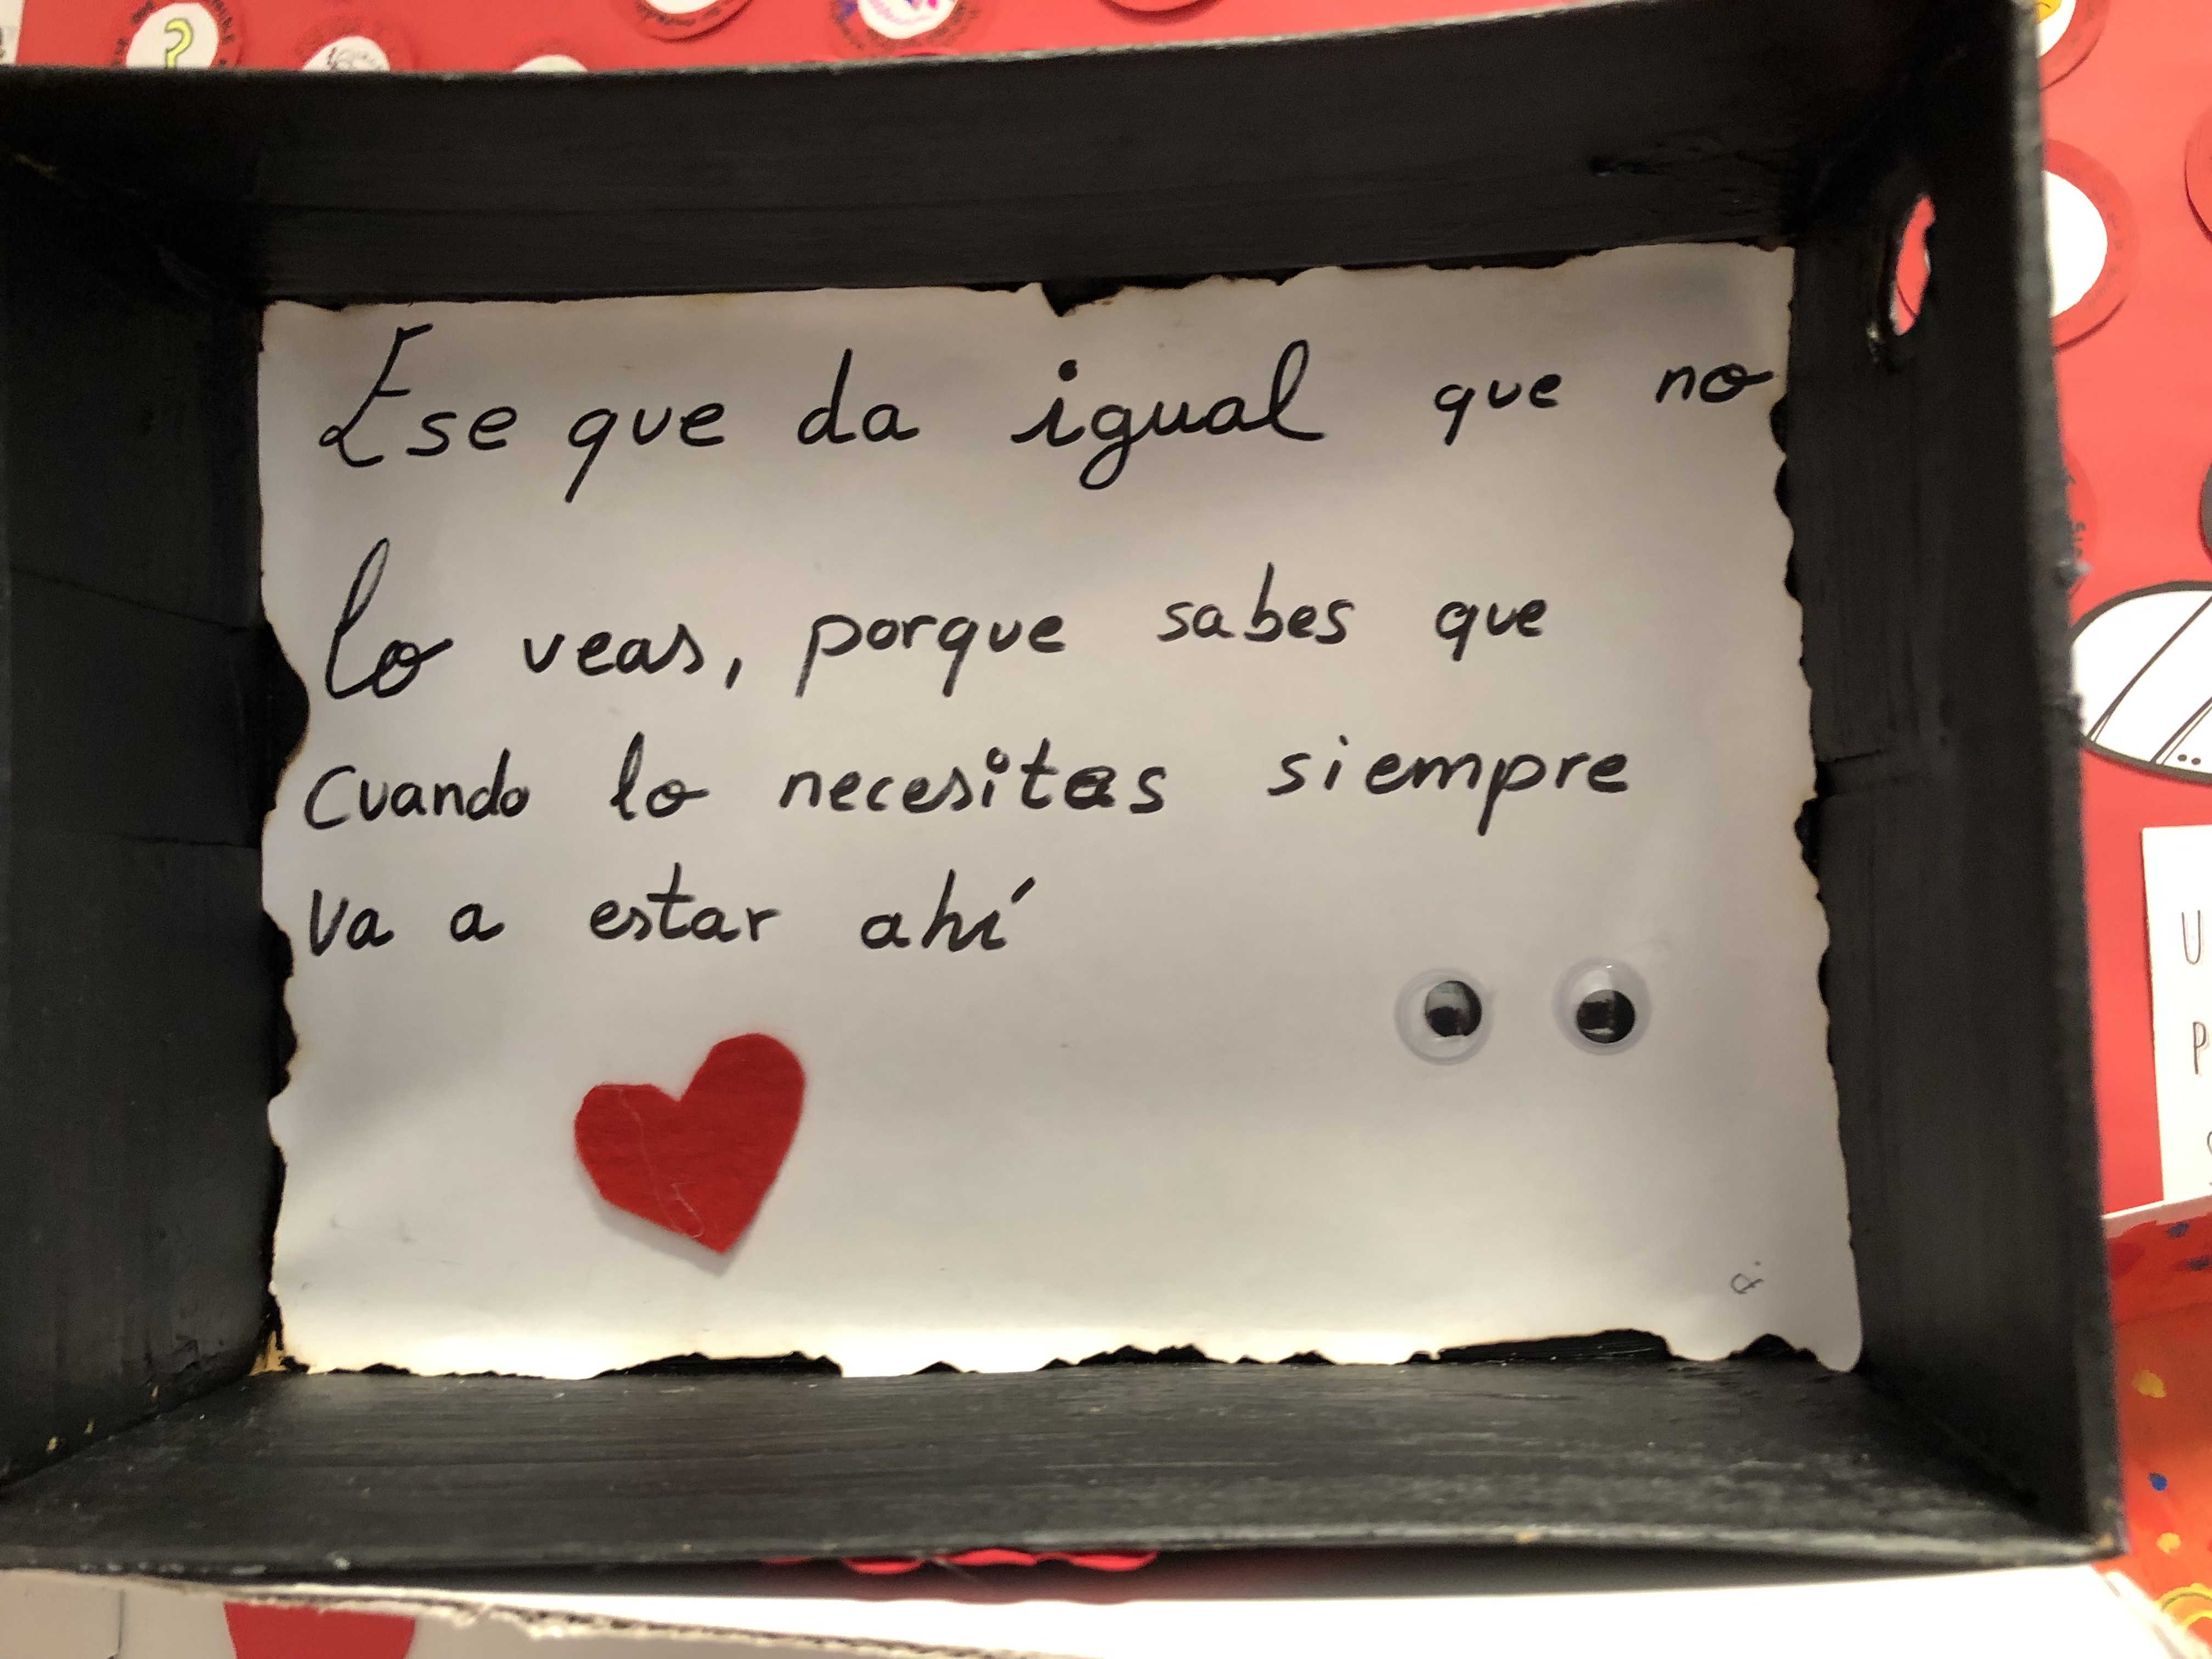 Ese que da igual que no
lo veas, porque sabes que
cuando lo necesitas siempre
va a estar ahí
?
U
P